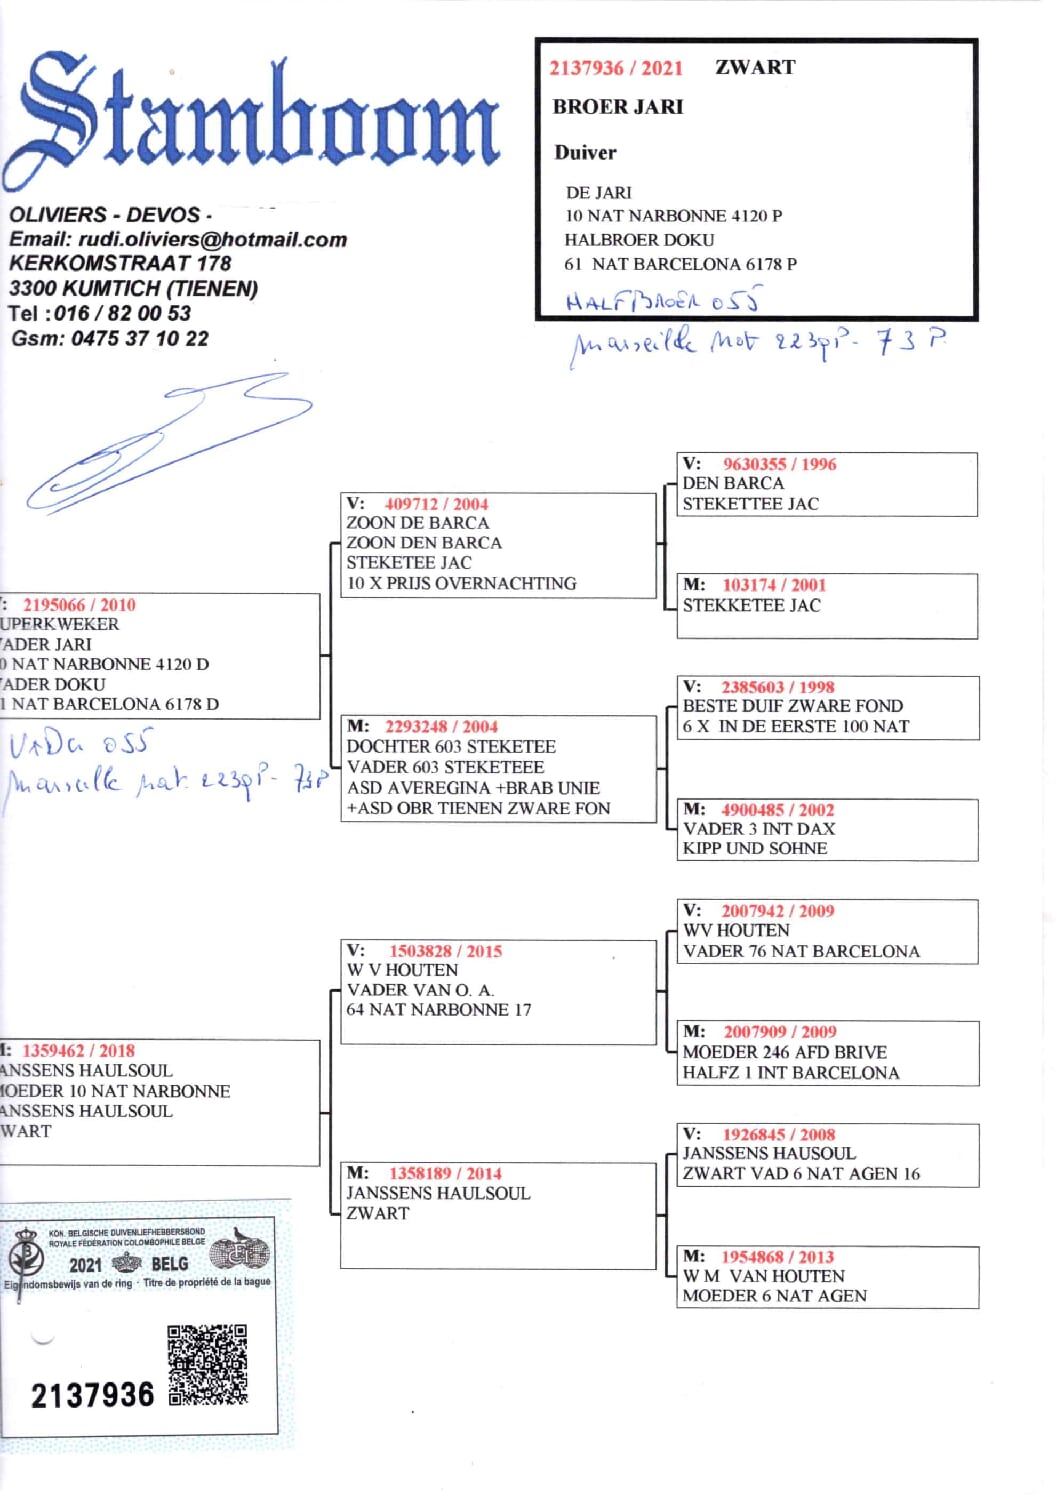 Stamboom
OLIVIERS - DEVOS -
Email: rudi.oliviers@hotmail.com
KERKOMSTRAAT 178
3300 KUMTICH (TIENEN)
Tel : 016 / 82 00 53
Gsm: 0475 37 10 22
2137936 / 2021 ZWART
BROER JARI
Duiver
DE JARI
10 NAT NARBONNE 4120 P
HALBROER DOKU
61 NAT BARCELONA 6178 P
HALFBROER 055
Marseille Nat 223gP - 73 P
: 2195066 / 2010
UPERKWEKER
ADER JARI
0 NAT NARBONNE 4120 D
ADER DOKU
1 NAT BARCELONA 6178 D
VADER 055
Marseille Nat. 223gP - 73P
V: 409712 / 2004
ZOON DE BARCA
ZOON DEN BARCA
STEKETEE JAC
10 X PRIJS OVERNACHTING
M: 2293248 / 2004
DOCHTER 603 STEKETEE
VADER 603 STEKETEEE
ASD AVEREGINA +BRAB UNIE
+ASD OBR TIENEN ZWARE FON
V: 9630355 / 1996
DEN BARCA
STEKETTEE JAC
M: 103174 / 2001
STEKKETEE JAC
V: 2385603 / 1998
BESTE DUIF ZWARE FOND
6 X IN DE EERSTE 100 NAT
M: 4900485 / 2002
VADER 3 INT DAX
KIPP UND SOHNE
: 1359462 / 2018
ANSSENS HAULSOUL
OEDER 10 NAT NARBONNE
ANSSENS HAULSOUL
WART
V: 1503828 / 2015
W V HOUTEN
VADER VAN O. A.
64 NAT NARBONNE 17
M: 1358189 / 2014
JANSSENS HAULSOUL
ZWART
V: 2007942 / 2009
WV HOUTEN
VADER 76 NAT BARCELONA
M: 2007909 / 2009
MOEDER 246 AFD BRIVE
HALFZ 1 INT BARCELONA
V: 1926845 / 2008
JANSSENS HAUSOUL
ZWART VAD 6 NAT AGEN 16
M: 1954868 / 2013
W M VAN HOUTEN
MOEDER 6 NAT AGEN
KON. BELGISCHE DUIVENLIEFHEBBERSBOND
ROYALE FÉDÉRATION COLOMBOPHILE BELGE
2021 BELG
Eigendomsbewijs van de ring - Titre de propriété de la bague
2137936